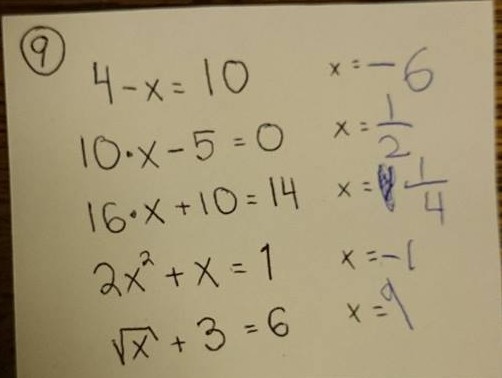 9
4 - x = 10 x = -6
10·x - 5 = 0 x = 1/2
16·x + 10 = 14 x = 1/4
2x² + x = 1 x = -1
√x + 3 = 6 x = 9